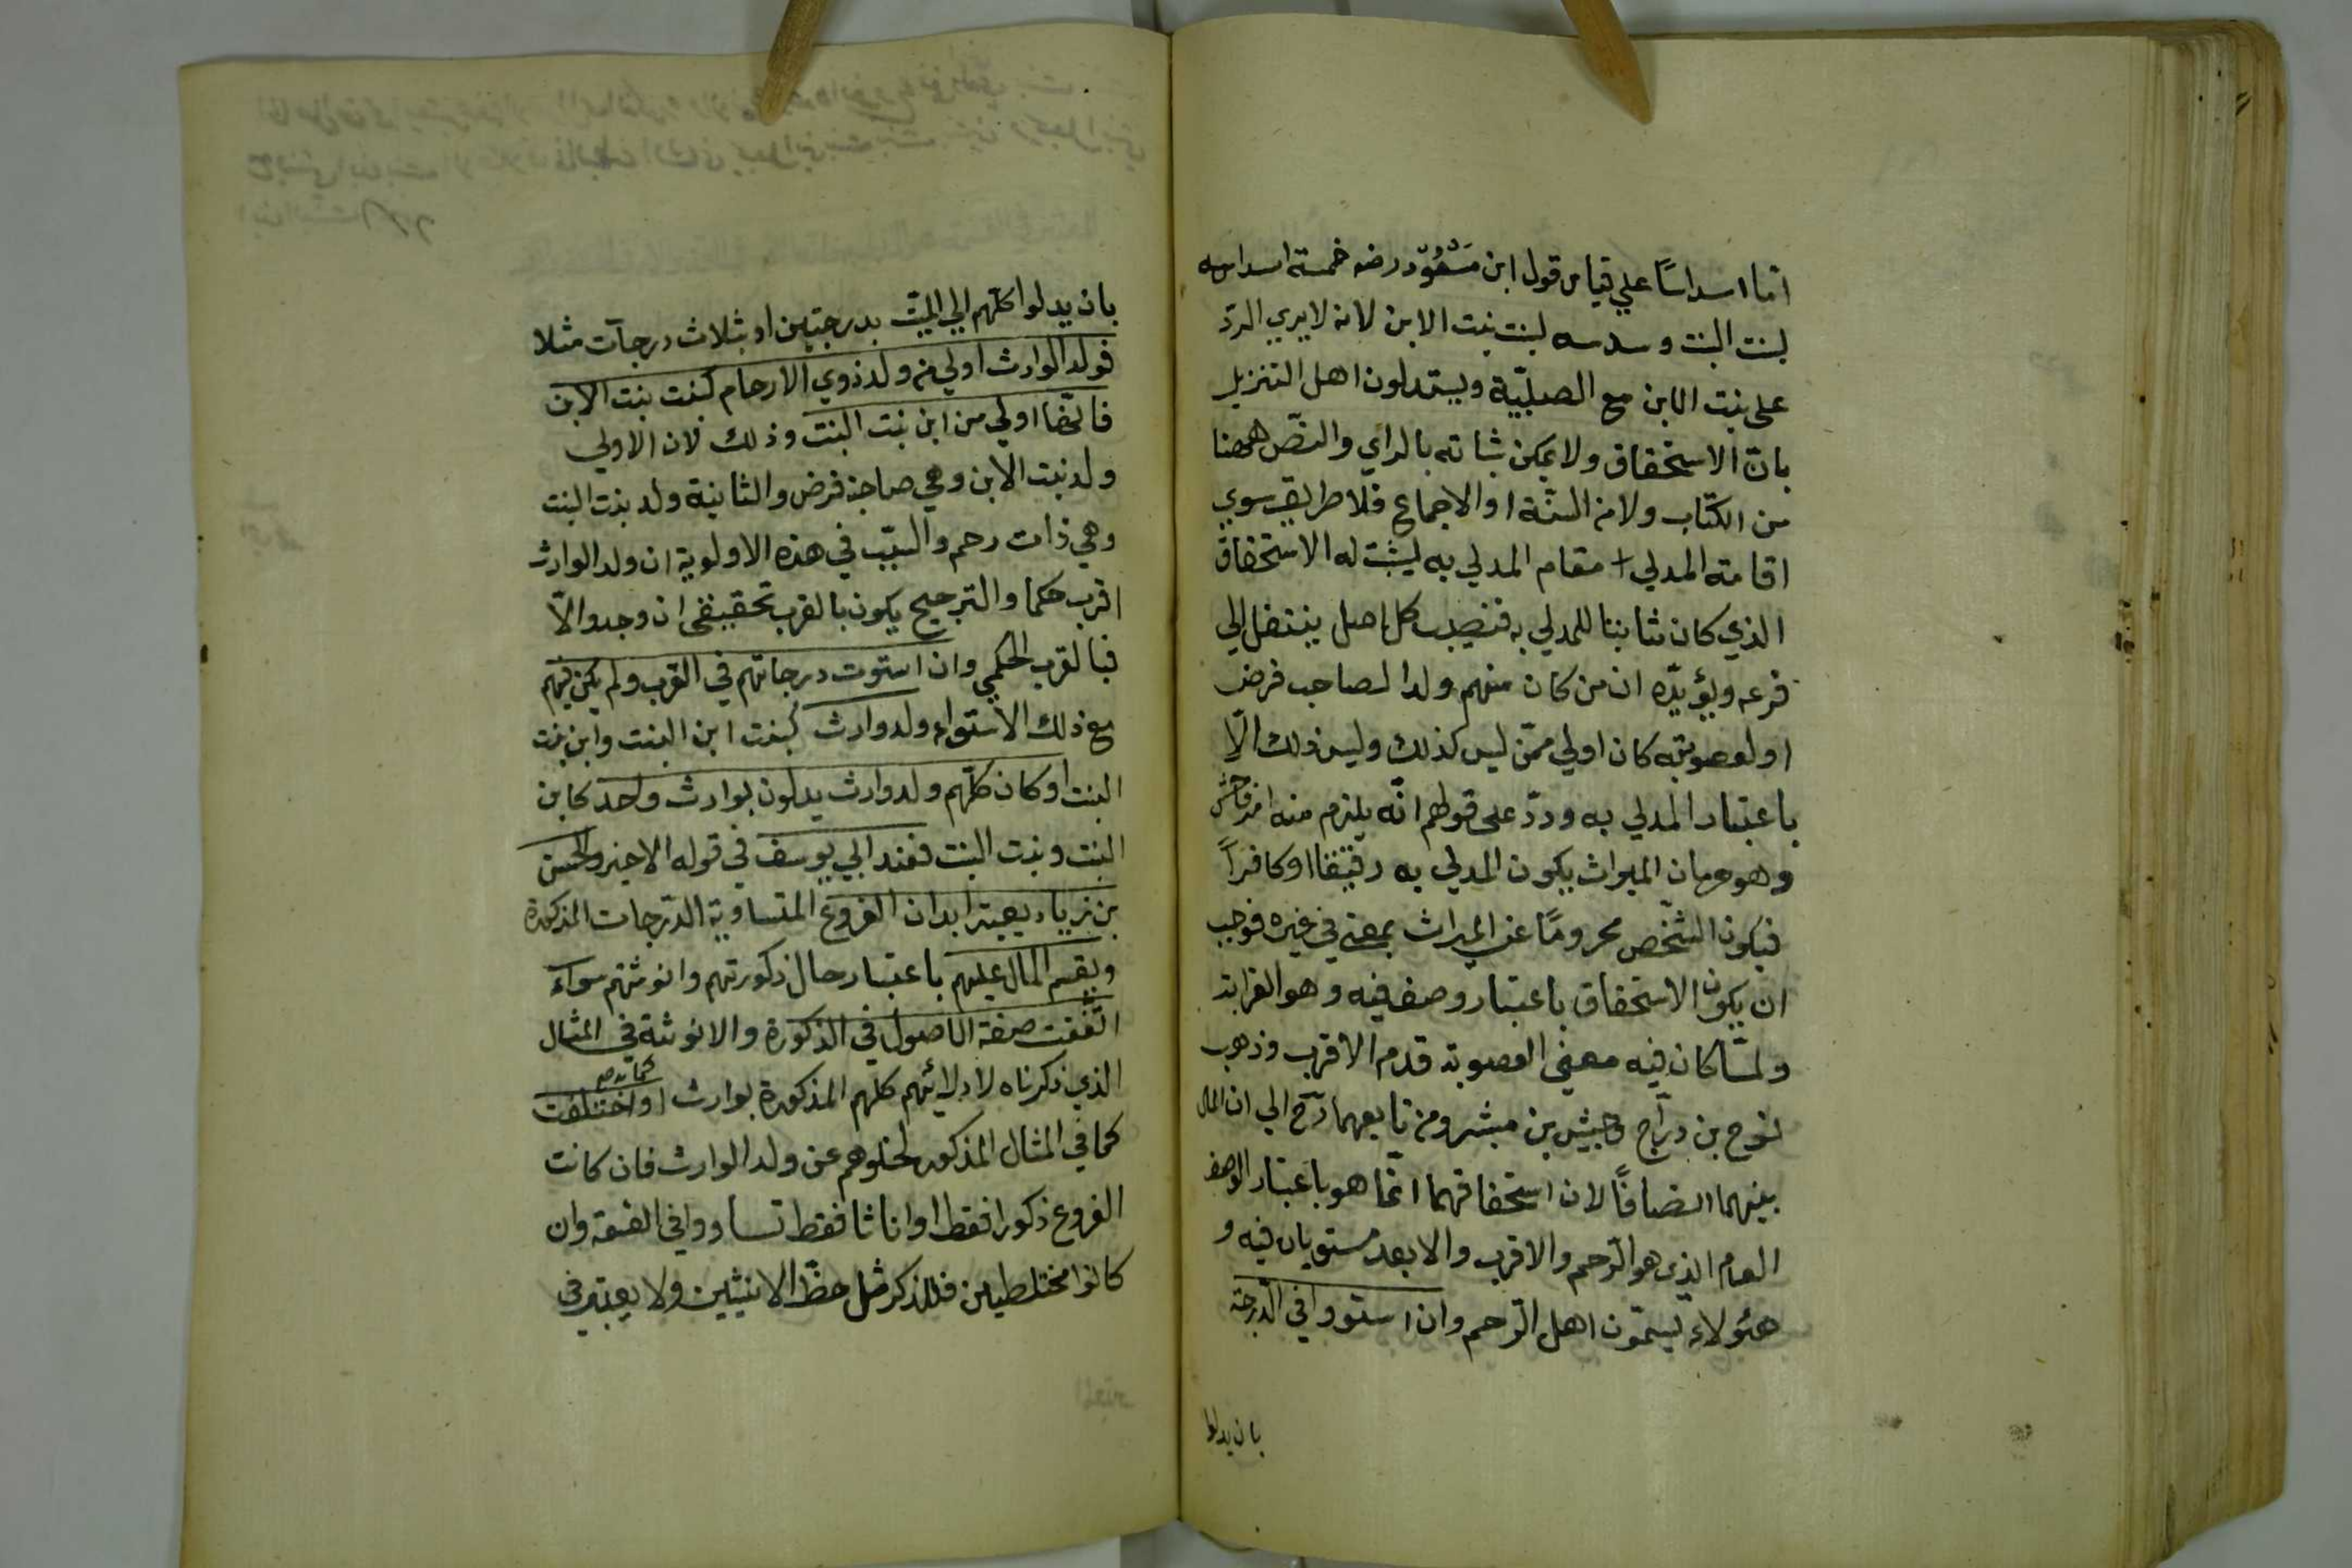 اما اسداسًا علي قياس قول ابن مسعود رضه خمسة اسداسه
لبنت البنت وسدسه لبنت بنت الابن لانه لا يري الرد
على بنت الابن مع الصلبيّة ويستدلون اهل التنزيل
بان الاستحقاق ولا يمكن بثباته بالراي والنصّ ههنا
من الكتاب ولا من السنّة او الاجماع فلا طريق سوي
اقامة المدلي مقام المدلي به ليثبت له الاستحقاق
الذي كان ثابتا للمدلي به فنصيب كل اصل ينتقل الي
فرعه ويؤيّده ان من كان منهم ولدا لصاحب فرض
او لعصوبته كان اولي ممّن ليس كذلك وليس ذلك الّا
باعتبار المدلي به وردّ على قولهم انّه يلزم منه امر فاحش
وهو حرمان الميراث بكون المدلي به رقيقا او كافرًا
فيكون الشخص محرومًا عن الميراث بمعني في غيره فوجب
ان يكون الاستحقاق باعتبار وصف فيه وهو القرابة
ولمّا كان فيه معنى العصوبة قدم الاقرب وذهب
نوح بن درّاج وحبيش بن مبشر ومن تابعهما رح الي ان المال
بينهما انصافًا لان استحقاقهما انّما هو باعتبار الوصف
العام الذي هو الرّحم والاقرب والابعد مستويان فيه و
هئولاء يسمّون اهل الرّحم وان استووا في الدّرجة
بان يدلوا
بان يدلوا كلّهم الي الميّت بدرجتين او بثلاث درجات مثلا
فولد الوارث اولي من ولد ذوي الارحام كبنت بنت الابن
فانّها اولي من ابن بنت البنت وذلك لان الاولي
ولد بنت الابن وهي صاحبة فرض والثانية ولد بنت البنت
وهي ذات رحم والسبب في هذه الاولوية ان ولد الوارث
اقرب حكما والترجيح يكون بالقرب تحقيقى ان وجد والّا
فبالقرب الحكمي وان استوت درجاتهم في القرب ولم يكن فيهم
مع ذلك الاستواء ولد وارث كبنت ابن البنت وابن بنت
البنت او كان كلّهم ولد وارث يدلون بوارث واحد كابن
البنت وبنت البنت فعند ابي يوسف في قوله الاخير والحسن
بن زياد يعبتر ابدان الفروع المتساوية الدّرجات المذكورة
ويقسم المال عليهم باعتبار حال ذكورتهم وانوثتهم سواء
اتّفقت صفة الاصول في الذكورة والانوثة في المثال
الذي ذكرناه لادلائهم كلهم المذكورة بوارث او اختلفت
كما في المثال المذكور لخلوهم عن ولد الوارث فان كانت
الفروع ذكورا فقط او اناثا فقط تساووا في القسمة وان
كانوا مختلطين فللذكر مثل حظّ الانثيين ولا يعتبر في